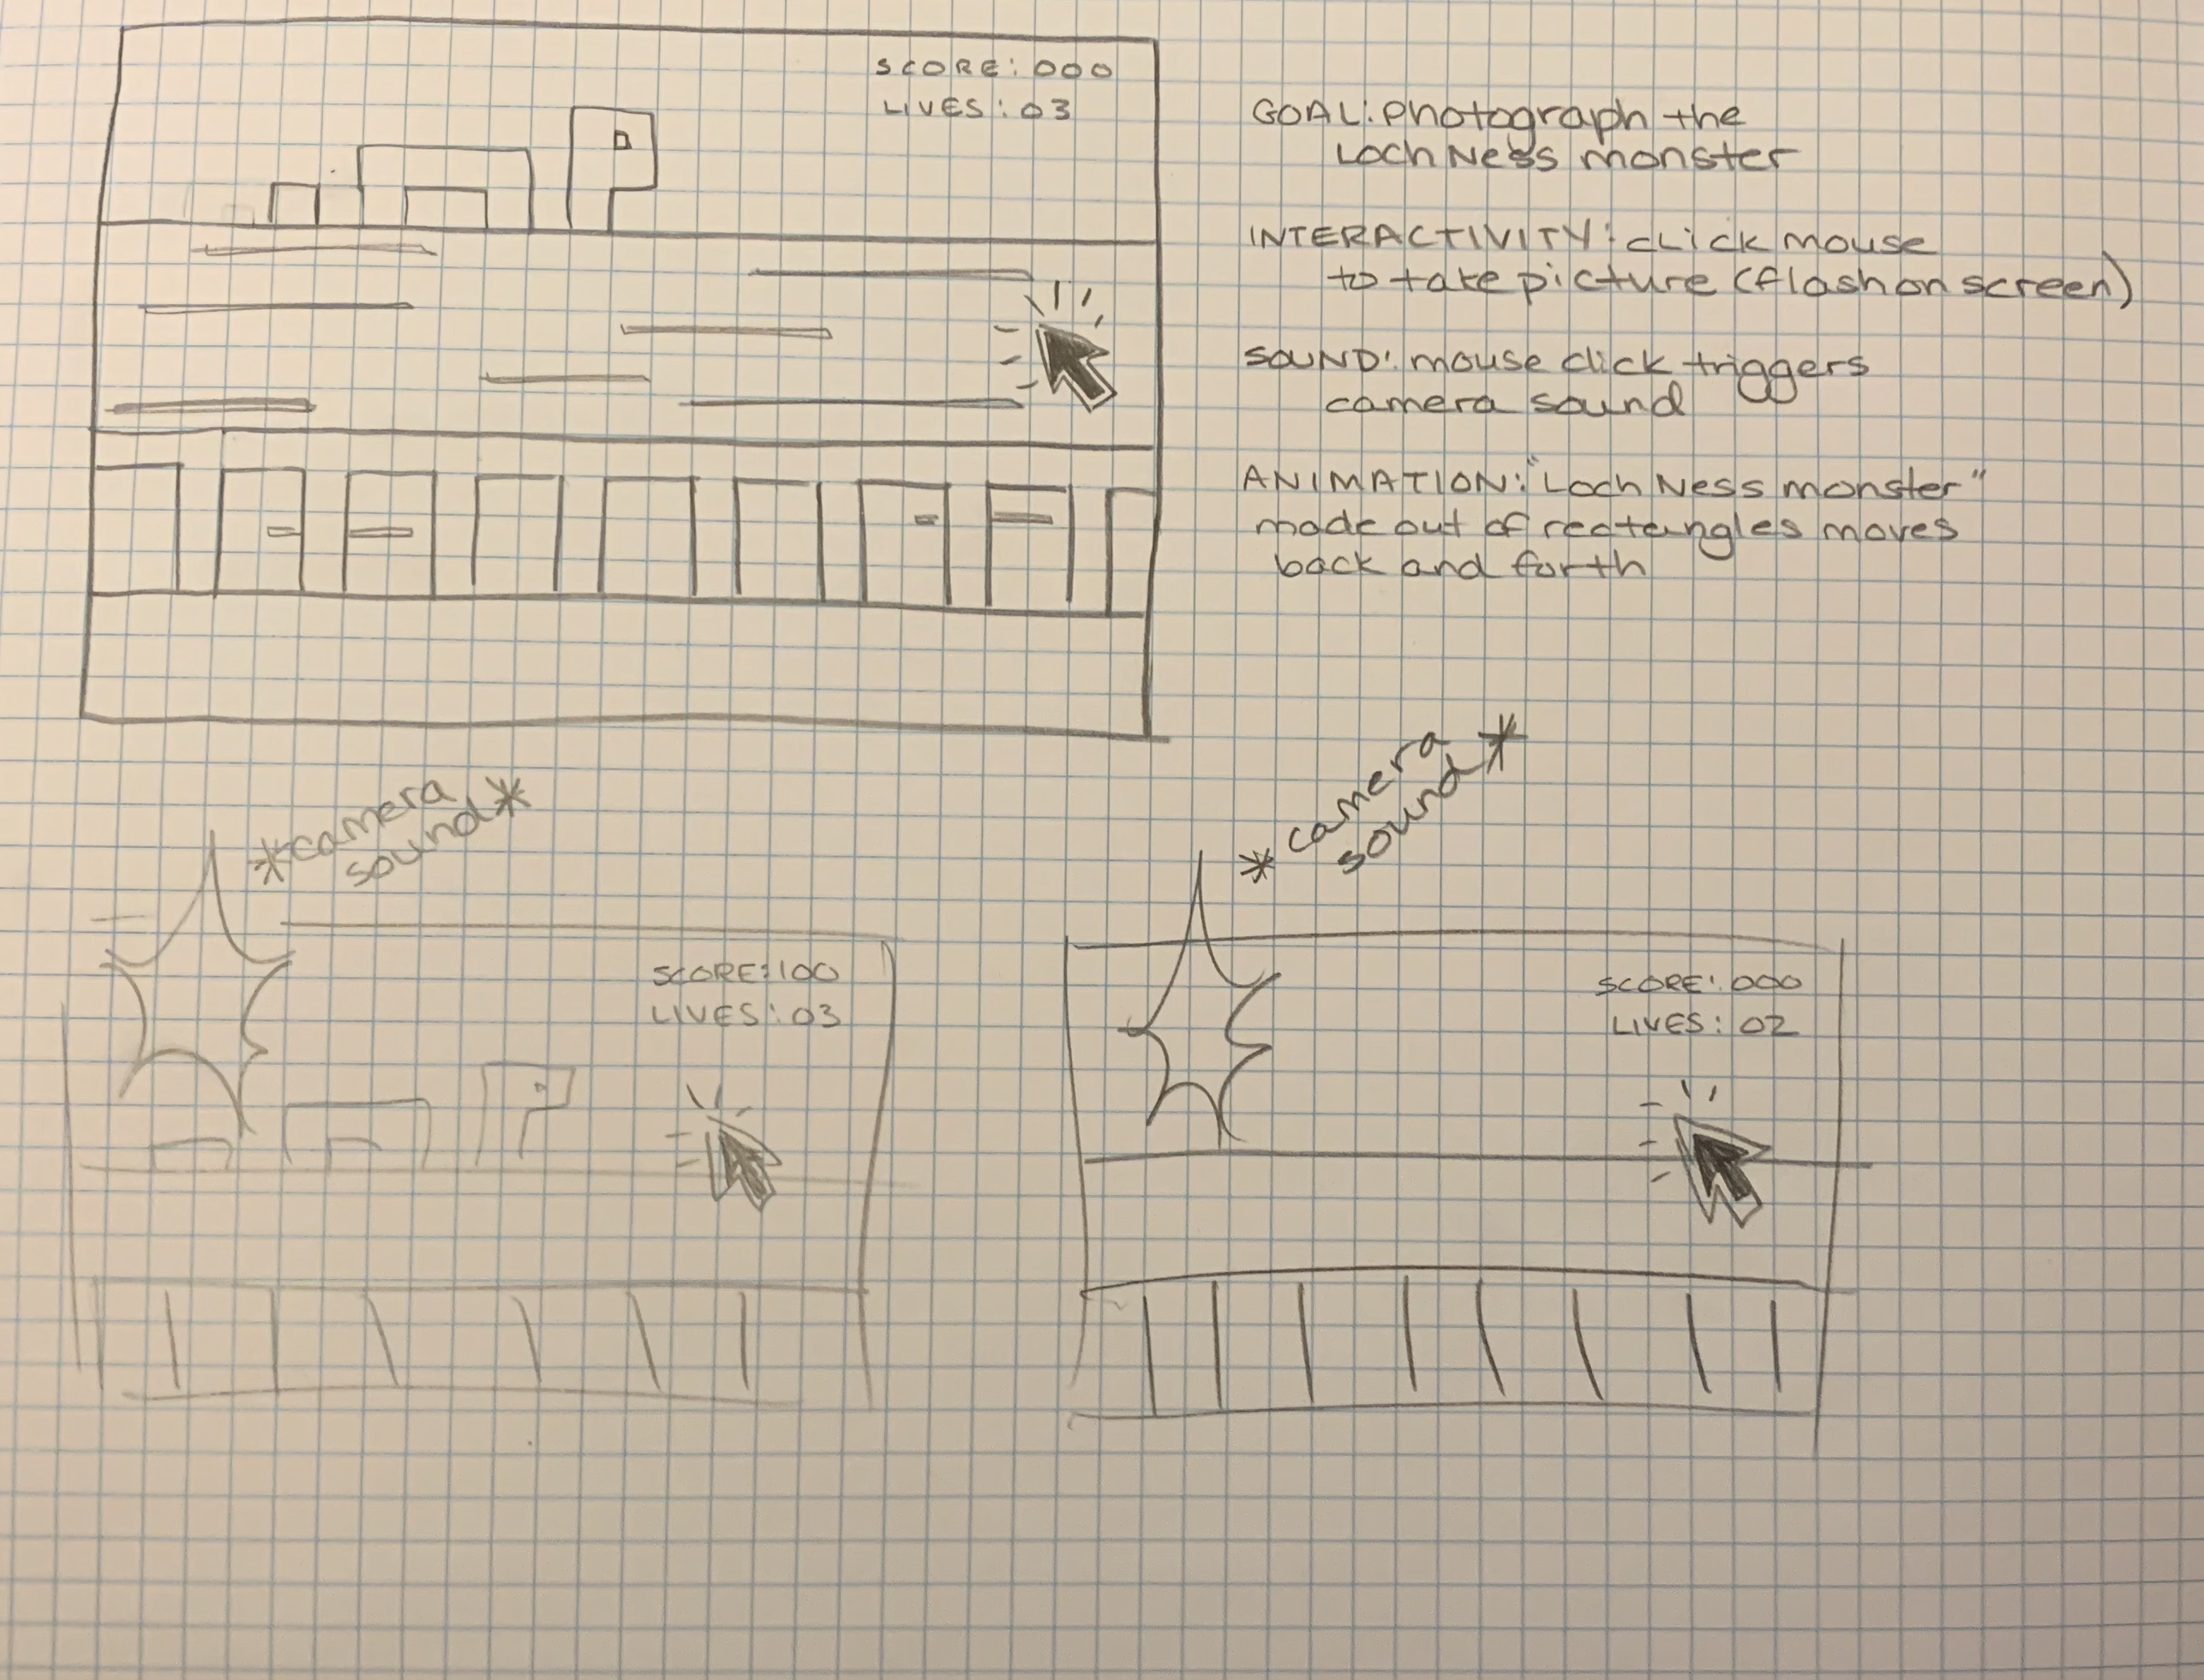 SCORE: 000
LIVES: 03
GOAL: photograph the
Loch Ness monster
INTERACTIVITY: click mouse
to take picture (flash on screen)
SOUND: mouse click triggers
camera sound
ANIMATION: "Loch Ness monster"
made out of rectangles moves
back and forth
*camera
sound*
SCORE: 100
LIVES: 03
* camera
sound *
SCORE: 000
LIVES: 02